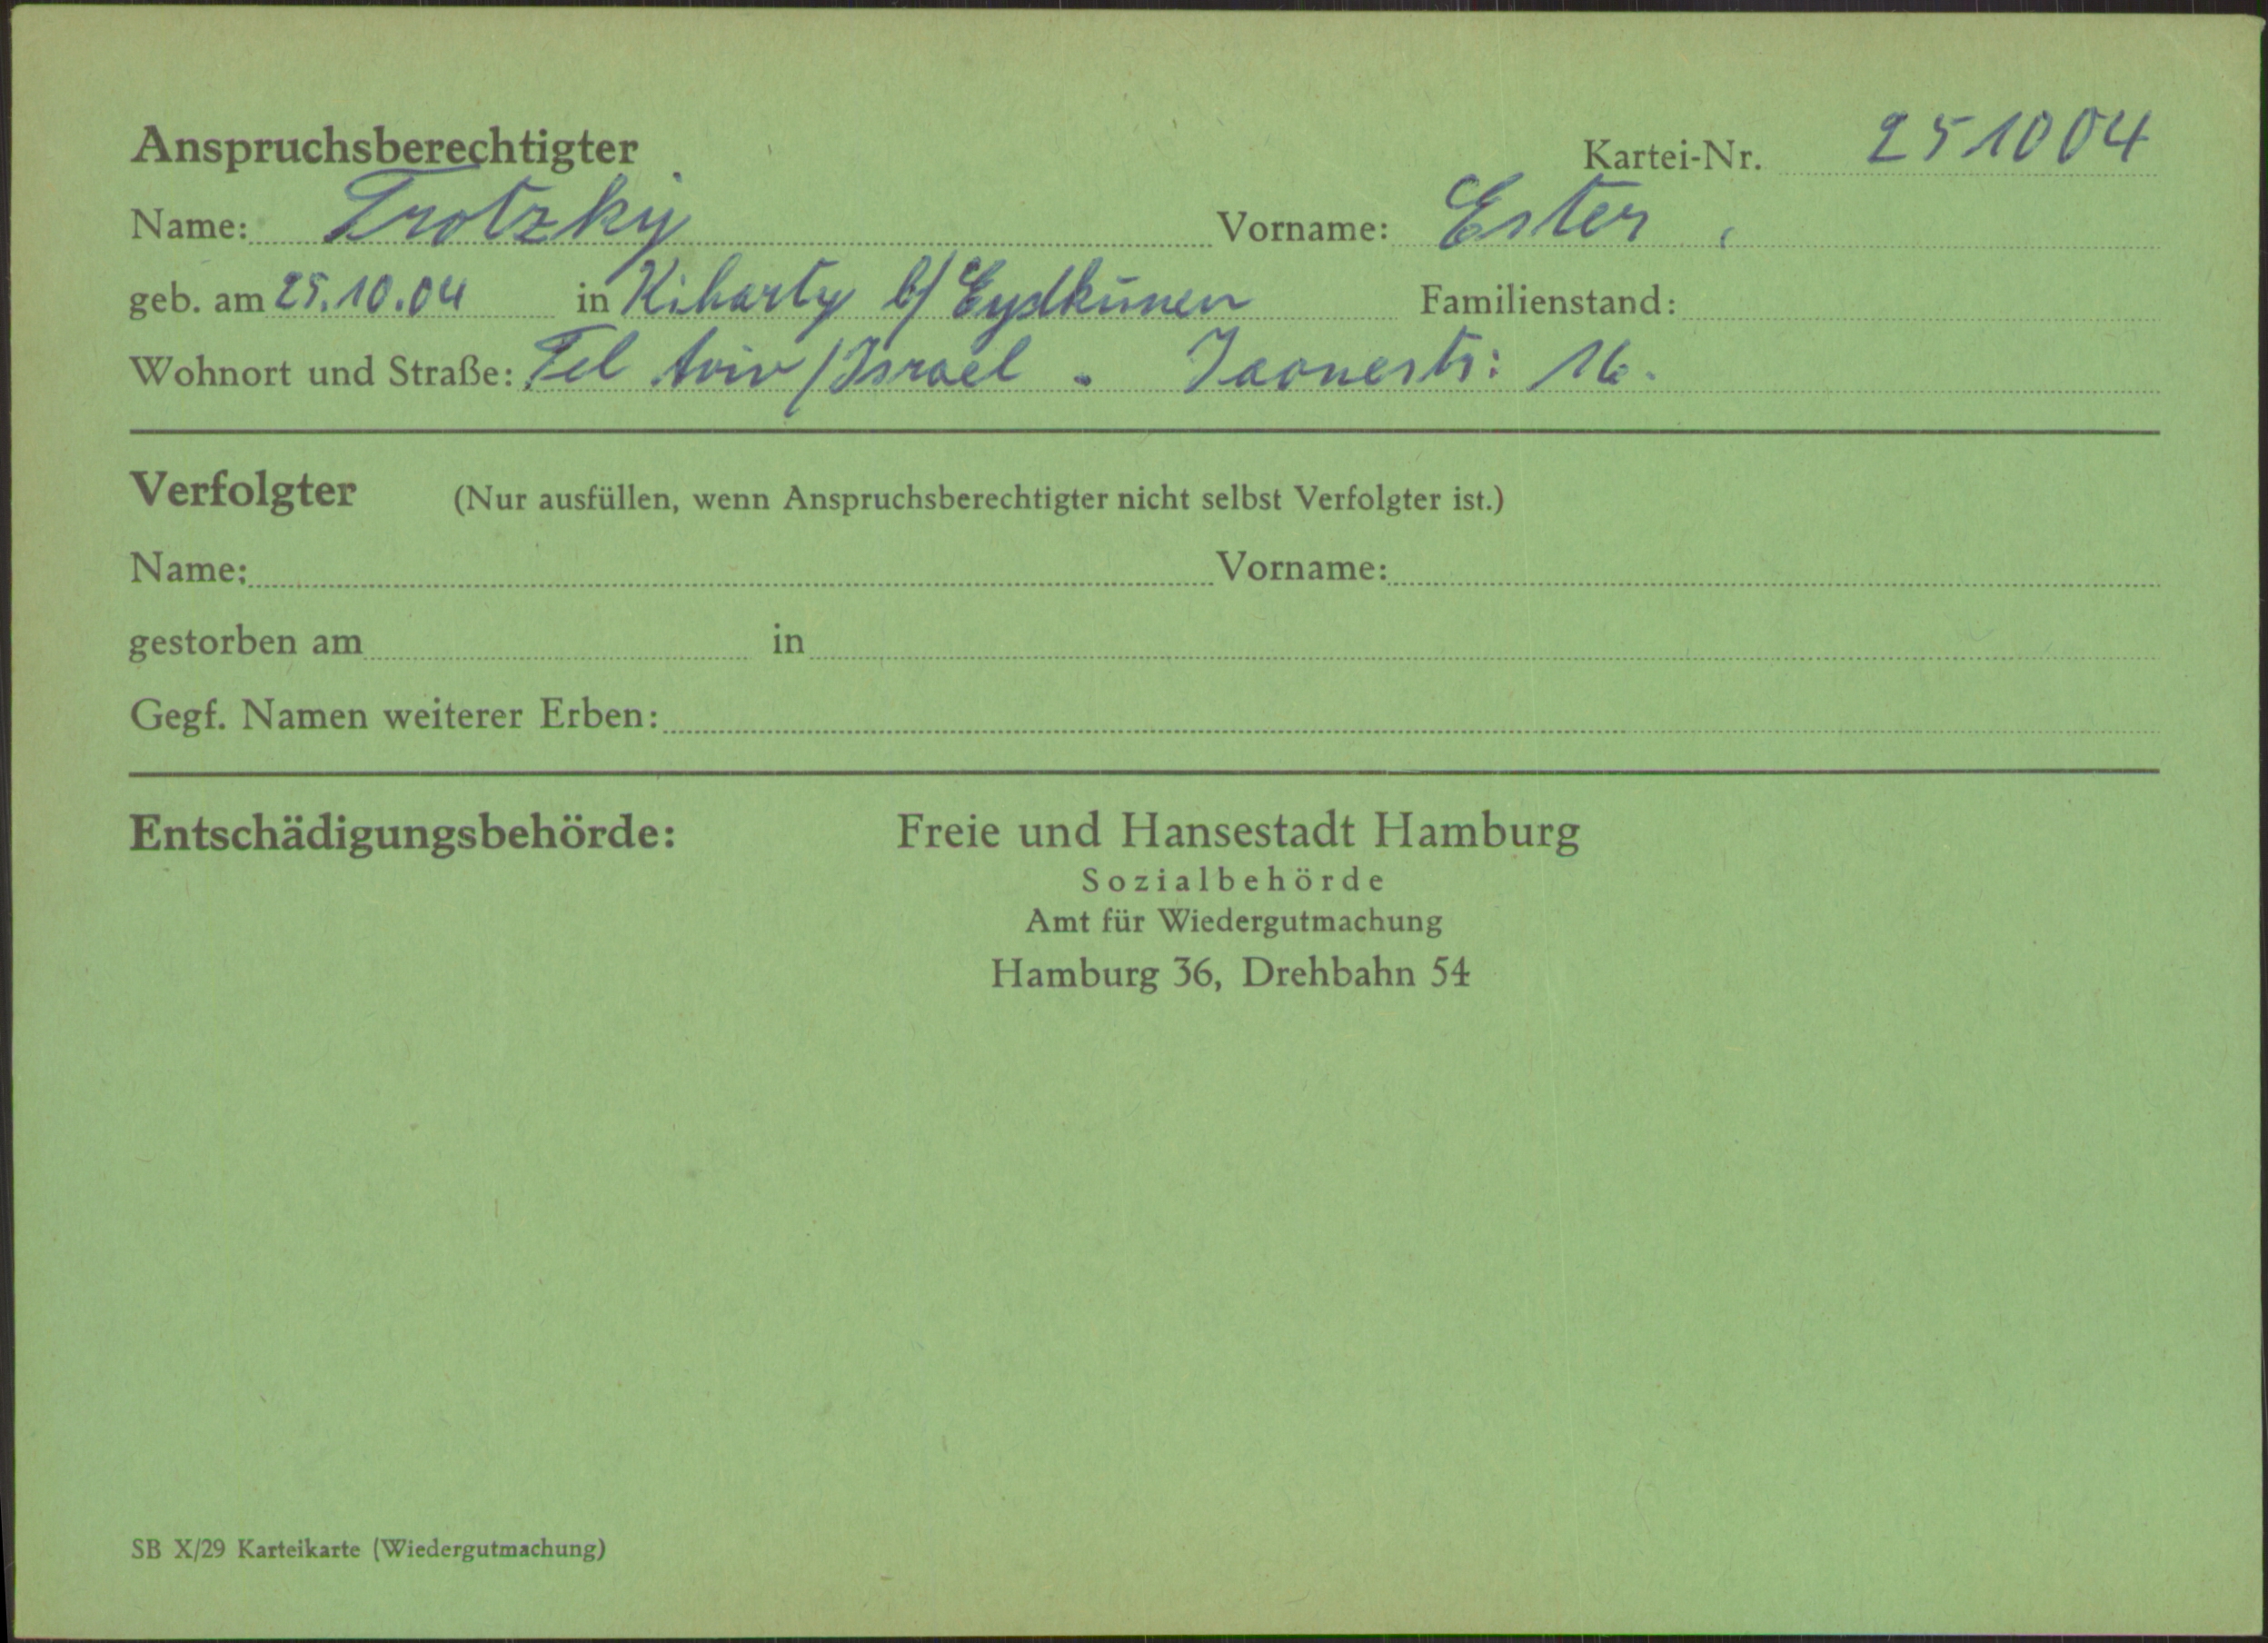 Anspruchsberechtigter Kartei-Nr. 251004
Name: Trotzky Vorname: Ester
geb. am 25.10.04 in Kibarty b/ Eydkunen Familienstand:
Wohnort und Straße: Tel Aviv / Israel. 16.
Verfolgter (Nur ausfüllen, wenn Anspruchsberechtigter nicht selbst Verfolgter ist.)
Name: Vorname:
gestorben am in
Gegf. Namen weiterer Erben:
Entschädigungsbehörde: Freie und Hansestadt Hamburg
Sozialbehörde
Amt für Wiedergutmachung
Hamburg 36, Drehbahn 54
SB X/29 Karteikarte (Wiedergutmachung)